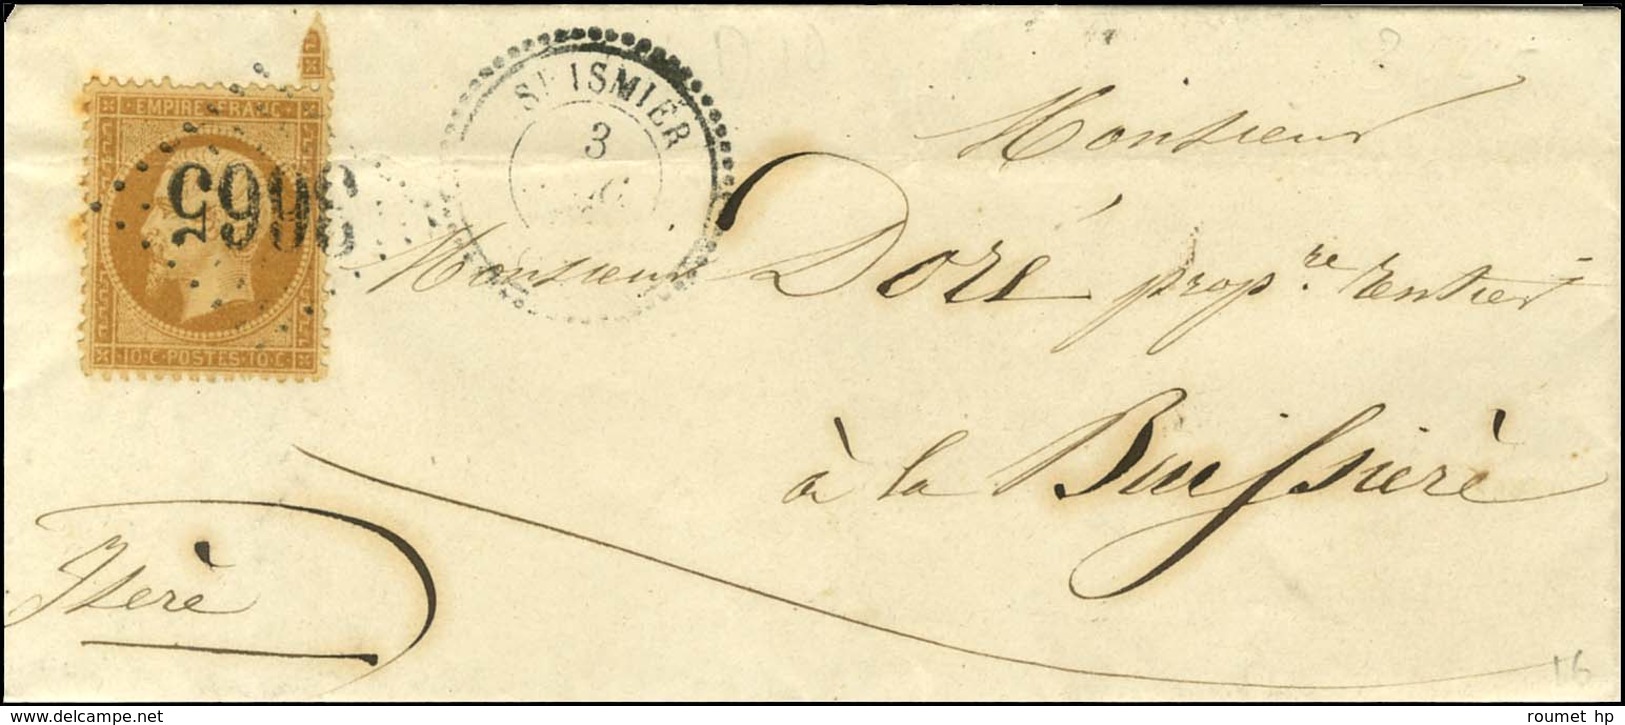 EMPIRE FRANC
3665
10·C·POSTES·10·C
ST ISMIER
3
Monsieur
Monsieur Doré propre. rentier
à la Buissierè
Iserè
16
roumet hp